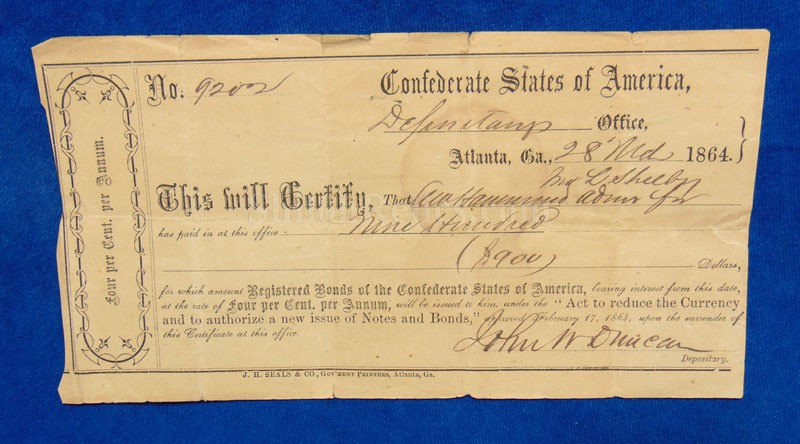 Four per Cent. per Annum.
No. 9202
Confederate States of America,
Office,
Atlanta, Ga., 28 1864.
Shelby
This will Certify, That Hammond Admr for
has paid in at this office Nine Hundred
($900) Dollars,
for which amount Registered Bonds of the Confederate States of America, bearing interest from this date,
at the rate of Four per Cent. per Annum, will be issued to him, under the "Act to reduce the Currency
and to authorize a new issue of Notes and Bonds," approved February 17, 1864, upon the surrender of
this Certificate at this office.
John W Duncan
Depositary.
J. H. SEALS & CO., GOV'MENT PRINTERS, Atlanta, Ga.